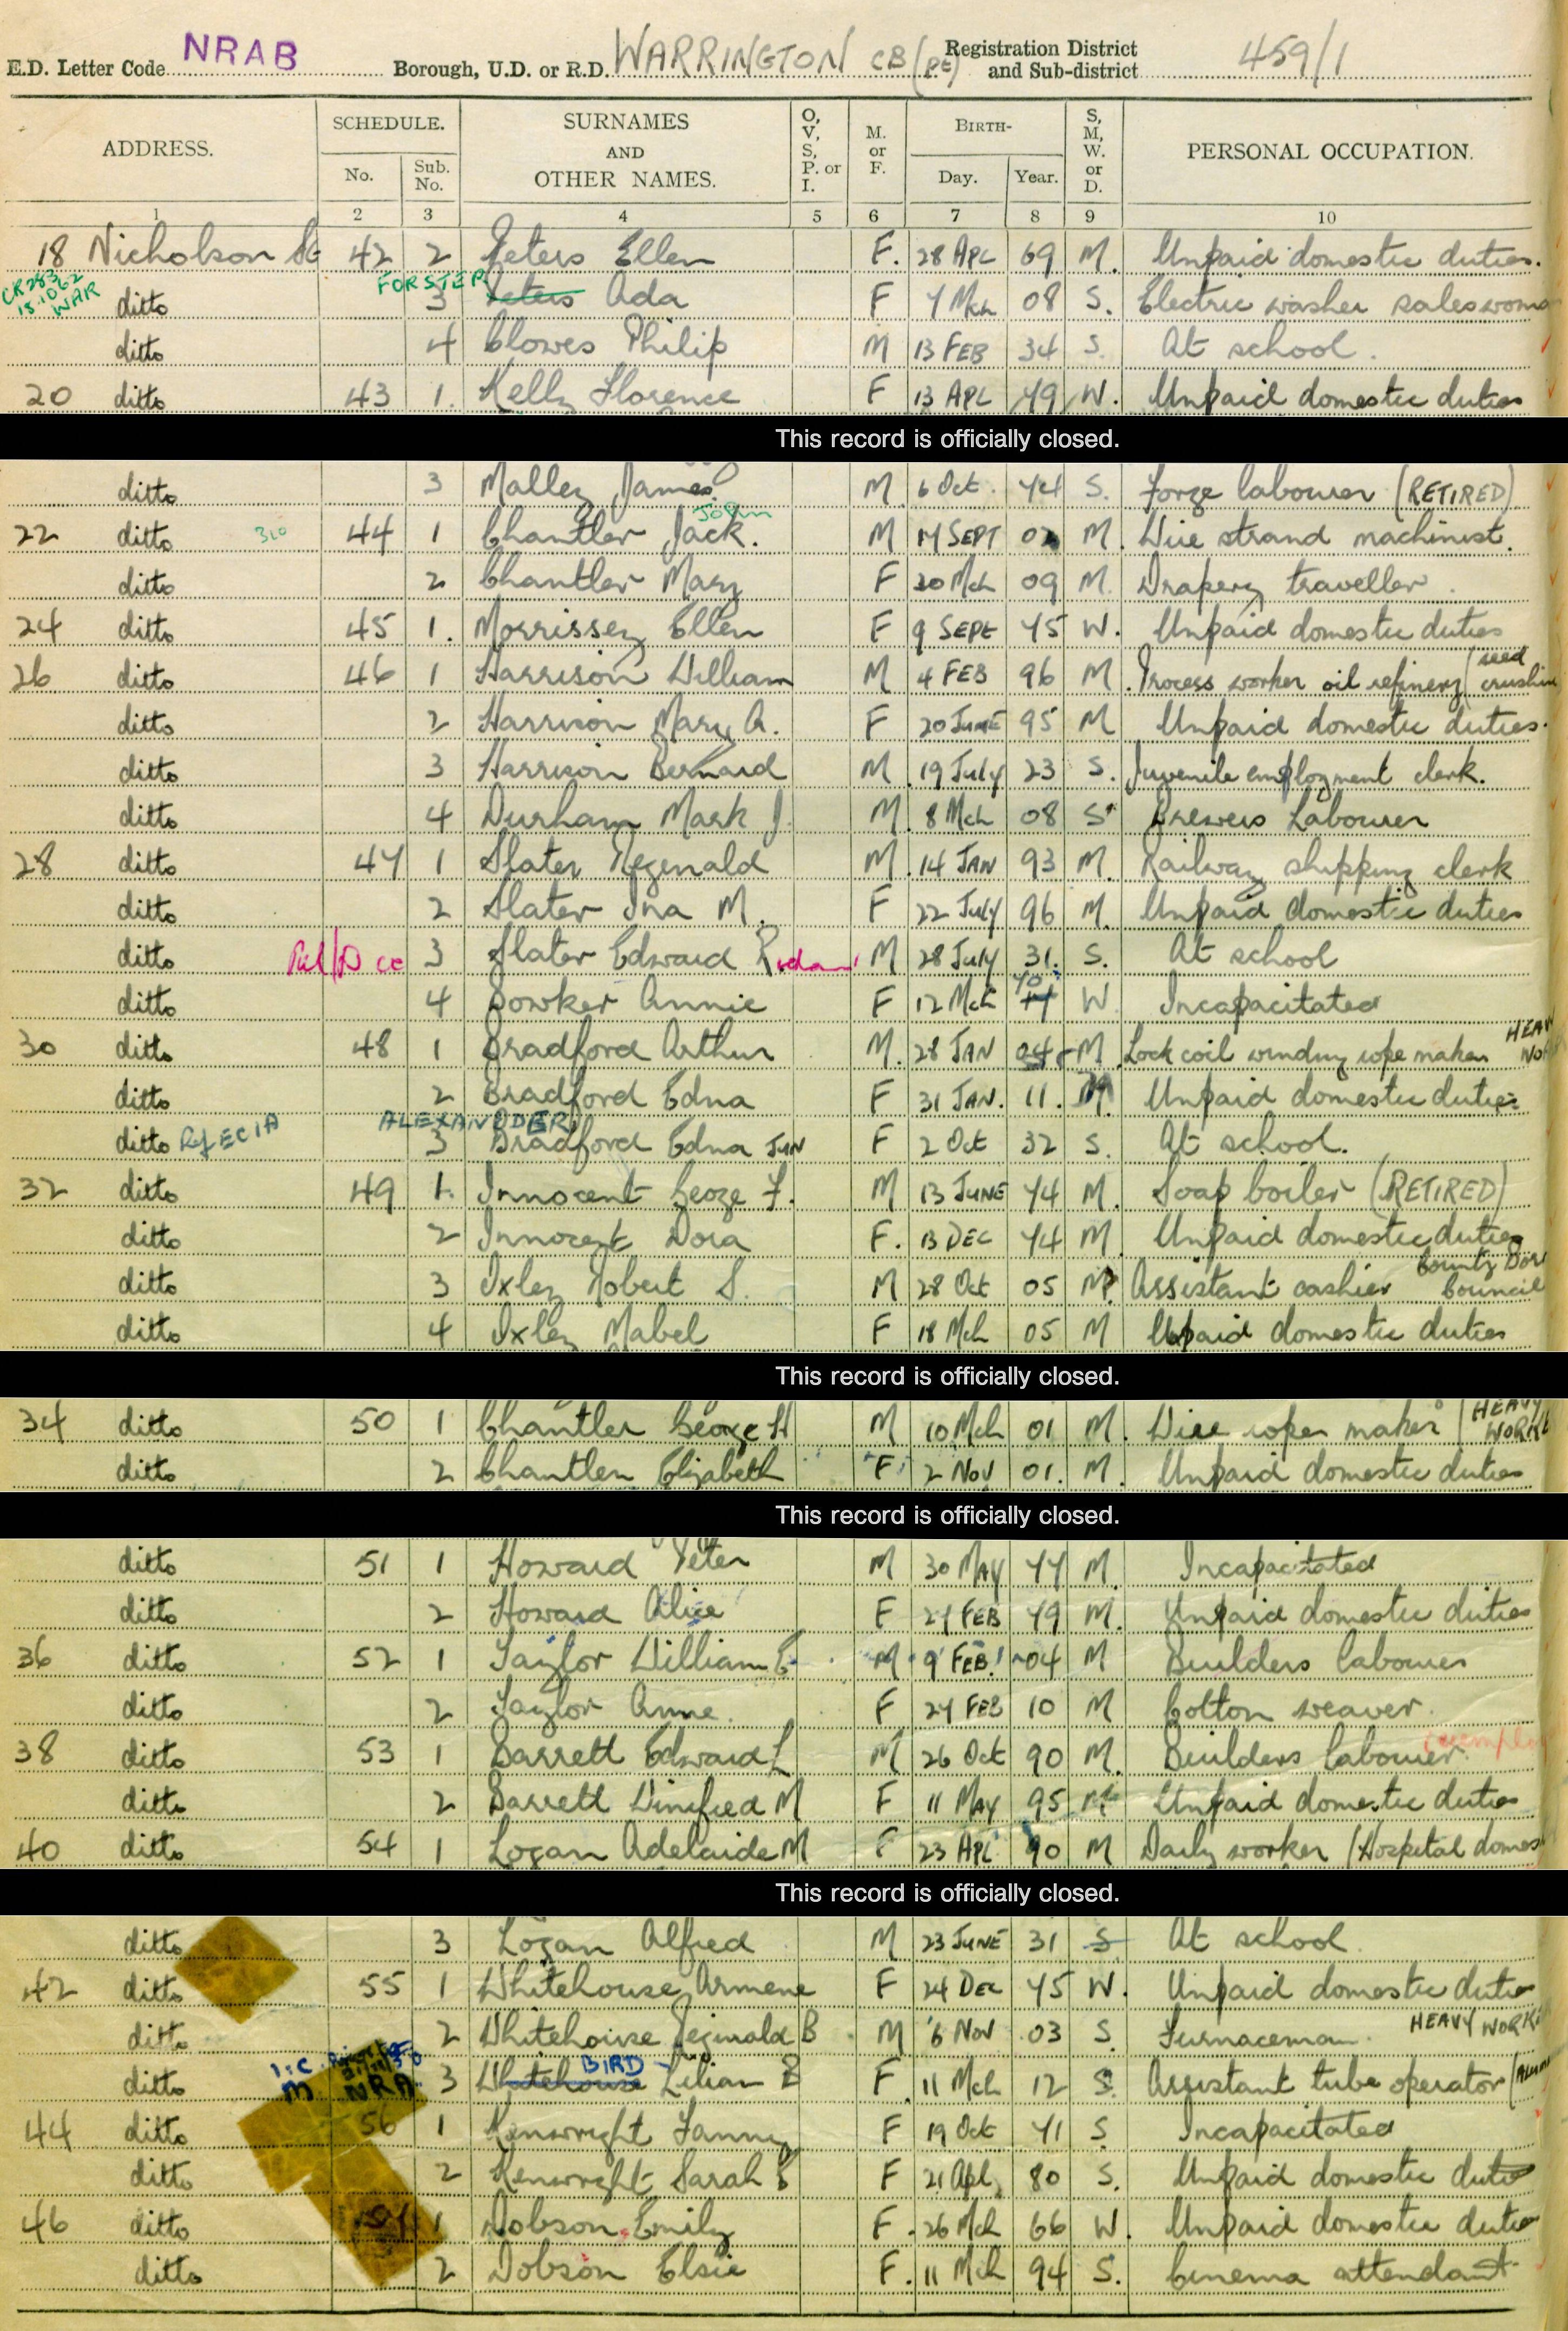 E.D. Letter Code NRAB Borough, U.D. or R.D. WARRINGTON CB (PE) Registration District and Sub-district 459/1
ADDRESS. SCHEDULE. No. Sub. No. SURNAMES AND OTHER NAMES. O, V, S, P. or I. M. or F. BIRTH- Day. Year. S, M, W. or D. PERSONAL OCCUPATION.
1 2 3 4 5 6 7 8 9 10
18 Nicholson St 42 2 Peters Ellen F. 28 APL 69 M. Unpaid domestic duties.
WAR FORSTER
ditto 3 Peters Ada F 7 Mch 08 S. Electric washer saleswoma
ditto 4 Clowes Philip M 13 FEB 34 S. At school.
20 ditto 43 1. Kelly Florence F 13 APL 79 W. Unpaid domestic duties
This record is officially closed.
ditto 3 Malley James M. 6 Oct. 74 S. Forge labourer (RETIRED)
John
22 ditto 310 44 1 Chantler Jack. M 17 SEPT 02 M. Wire strand machinist.
ditto 2 Chantler Mary F 20 Mch 09 M. Drapery traveller.
24 ditto 45 1. Morrissey Ellen F 9 SEPT 75 W. Unpaid domestic duties
26 ditto 46 1 Harrison William M 4 FEB 96 M. Process worker oil refinery (seed crushin
ditto 2 Harrison Mary A. F 20 JUNE 95 M Unpaid domestic duties.
ditto 3 Harrison Bernard M. 19 July 23 S. Juvenile employment clerk.
ditto 4 Durham Mark J. M. 8 Mch 08 S. Brewers Labourer
28 ditto 47 1 Slater Reginald M. 14 JAN 93 M. Railway shipping clerk
ditto 2 Slater Ina M. F 22 July 96 M. Unpaid domestic duties
ditto 3 Slater Edward R M 28 July 31. S. At school
ditto 4 Bowker Annie F 12 Mch 70 W Incapacitated
30 ditto 48 1 Bradford Arthur M. 28 JAN 04 M. Lock coil winding rope maker HEAV WOR
ditto 2 Bradford Edna F 31 JAN. 11. M. Unpaid domestic duties
ALEXANDER
ditto Ref ECIA 3 Bradford Edna JUN F 2 Oct 32 S. At school.
32 ditto 49 1. Innocent George F. M 13 JUNE 74 M. Soap boiler (RETIRED)
ditto 2 Innocent Dora F. 13 DEC 74 M. Unpaid domestic duties
ditto 3 Ixley Robert S. M 28 Oct 05 M Assistant cashier County Boro Council
ditto 4 Ixley Mabel F 18 Mch 05 M Unpaid domestic duties
This record is officially closed.
34 ditto 50 1 Chantler George H M 10 Mch 01 M. Wire rope maker (HEAVY WORK
ditto 2 Chantler Elizabeth F 2 NOV 01. M. Unpaid domestic duties
This record is officially closed.
ditto 51 1 Howard Peter M 30 MAY 77 M. Incapacitated
ditto 2 Howard Alice F 27 FEB 79 M. Unpaid domestic duties
36 ditto 52 1 Taylor William E M 9 FEB. 04 M Builders labourer
ditto 2 Taylor Anne. F 27 FEB 10 M Cotton weaver.
38 ditto 53 1 Barrett Edward L M 26 Oct 90 M. Builders labourer.
ditto 2 Barrett Winifred M F 11 MAY 95 M Unpaid domestic duties
40 ditto 54 1 Logan Adelaide M F 23 APL 90 M Daily worker (Hospital domes
This record is officially closed.
ditto 3 Logan Alfred M 23 JUNE 31 S At school.
42 ditto 55 1 Whitehouse Armene F 24 DEC 75 W. Unpaid domestic dutie
ditto 2 Whitehouse Reginald B M 6 NOV 03 S. Furnaceman. HEAVY WORK
BIRD
ditto M NRA 3 Whitehouse Lilian B F. 11 Mch 12 S. Assistant tube operator (ALUM
44 ditto 56 1 Kenwright Fanny F 19 Oct 71 S. Incapacitated
ditto 2 Kenwright Sarah E F 21 Apl 80 S. Unpaid domestic dutie
46 ditto 57 1 Dobson Emily F. 26 Mch 66 W. Unpaid domestic dutie
ditto 2 Dobson Elsie F. 11 Mch 94 S. Cinema attendant.